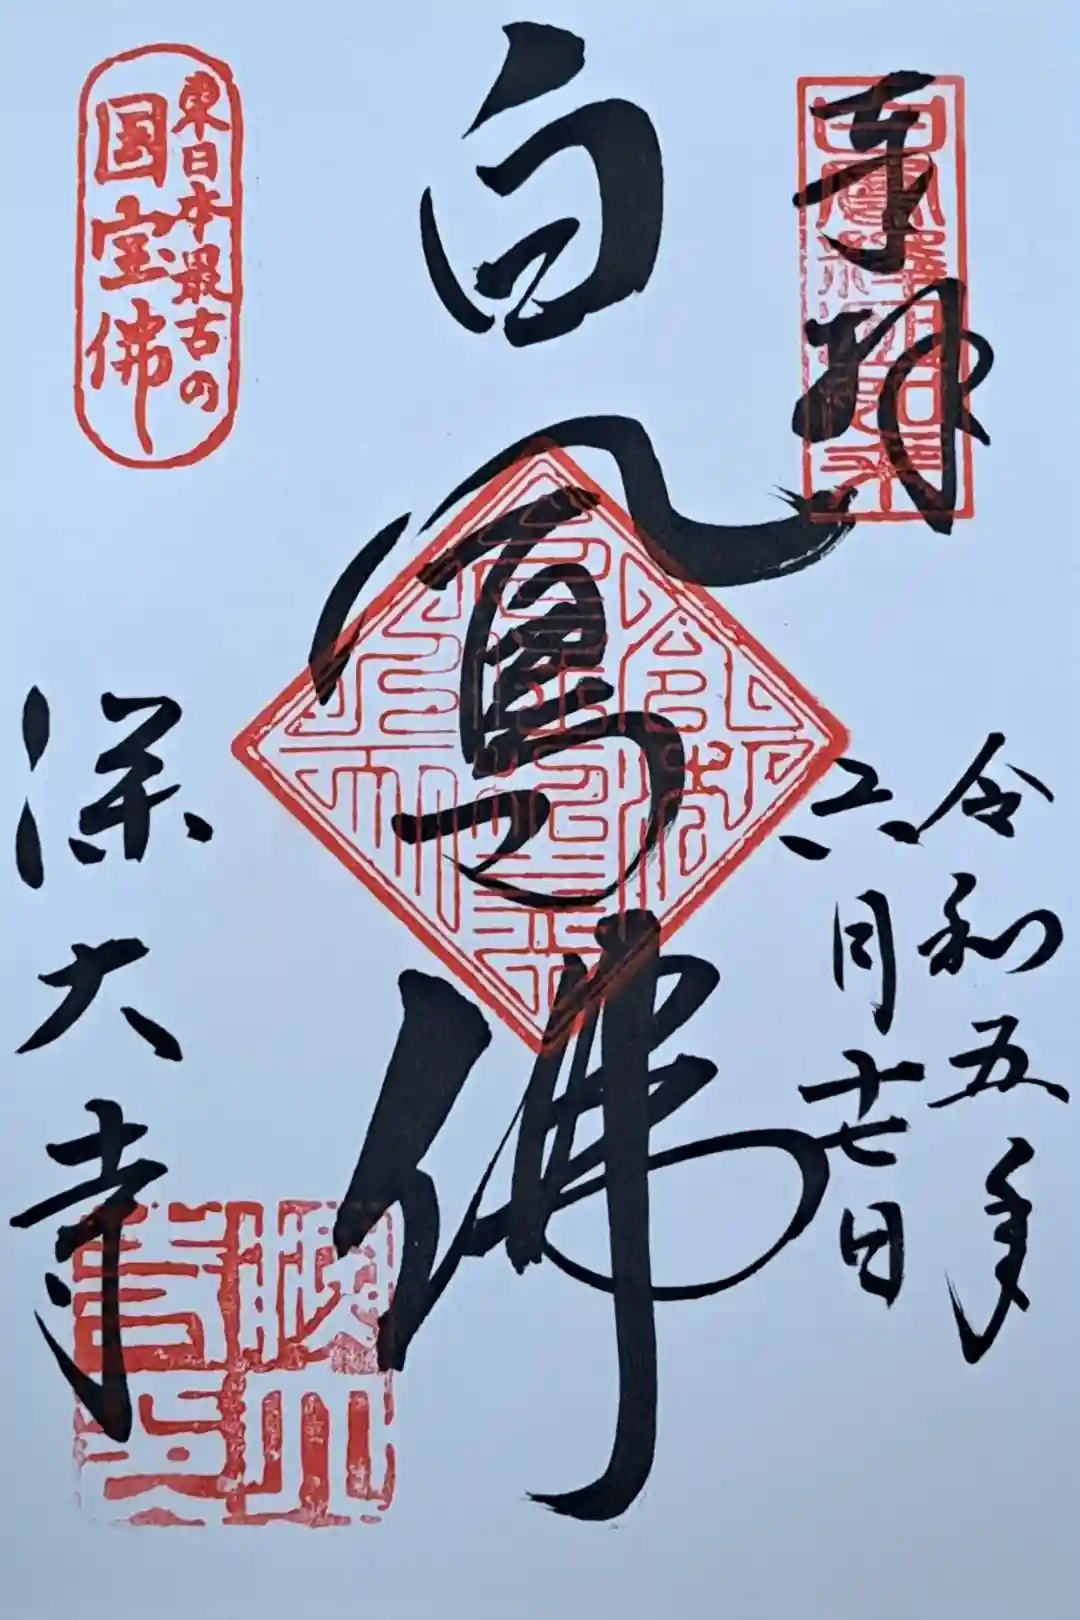 奉拝
令和五年
六月十七日
白鳳佛
東日本最古の
国宝佛
深大寺